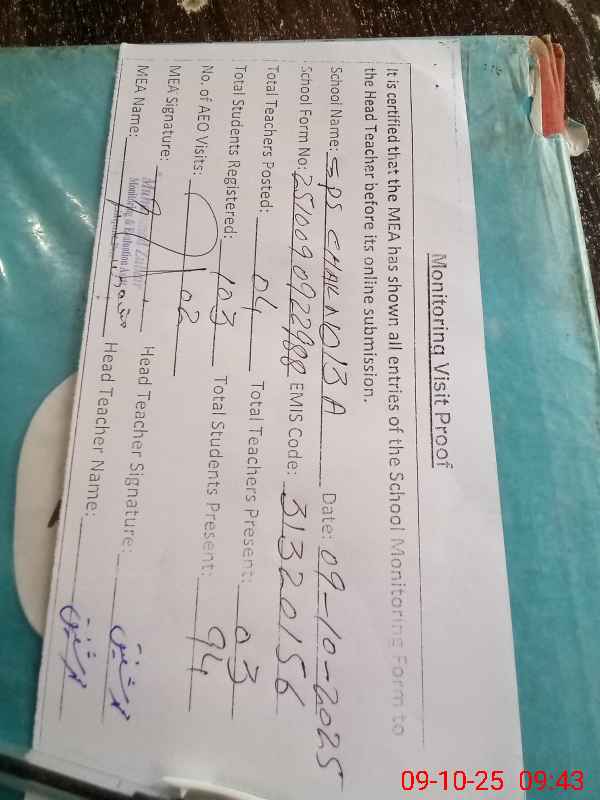 Monitoring Visit Proof
It is certified that the MEA has shown all entries of the School Monitoring Form to
the Head Teacher before its online submission.
School Name: GPS CHAK NO 13 A Date: 09-10-2025
School Form No: 251009092298 EMIS Code: 31320156
Total Teachers Posted: 04 Total Teachers Present: 03
Total Students Registered: 103 Total Students Present: 94
No. of AEO Visits: 02
MEA Signature: Head Teacher Signature:
MEA Name: Head Teacher Name:
Monitoring & Evaluation
09-10-25 09:43